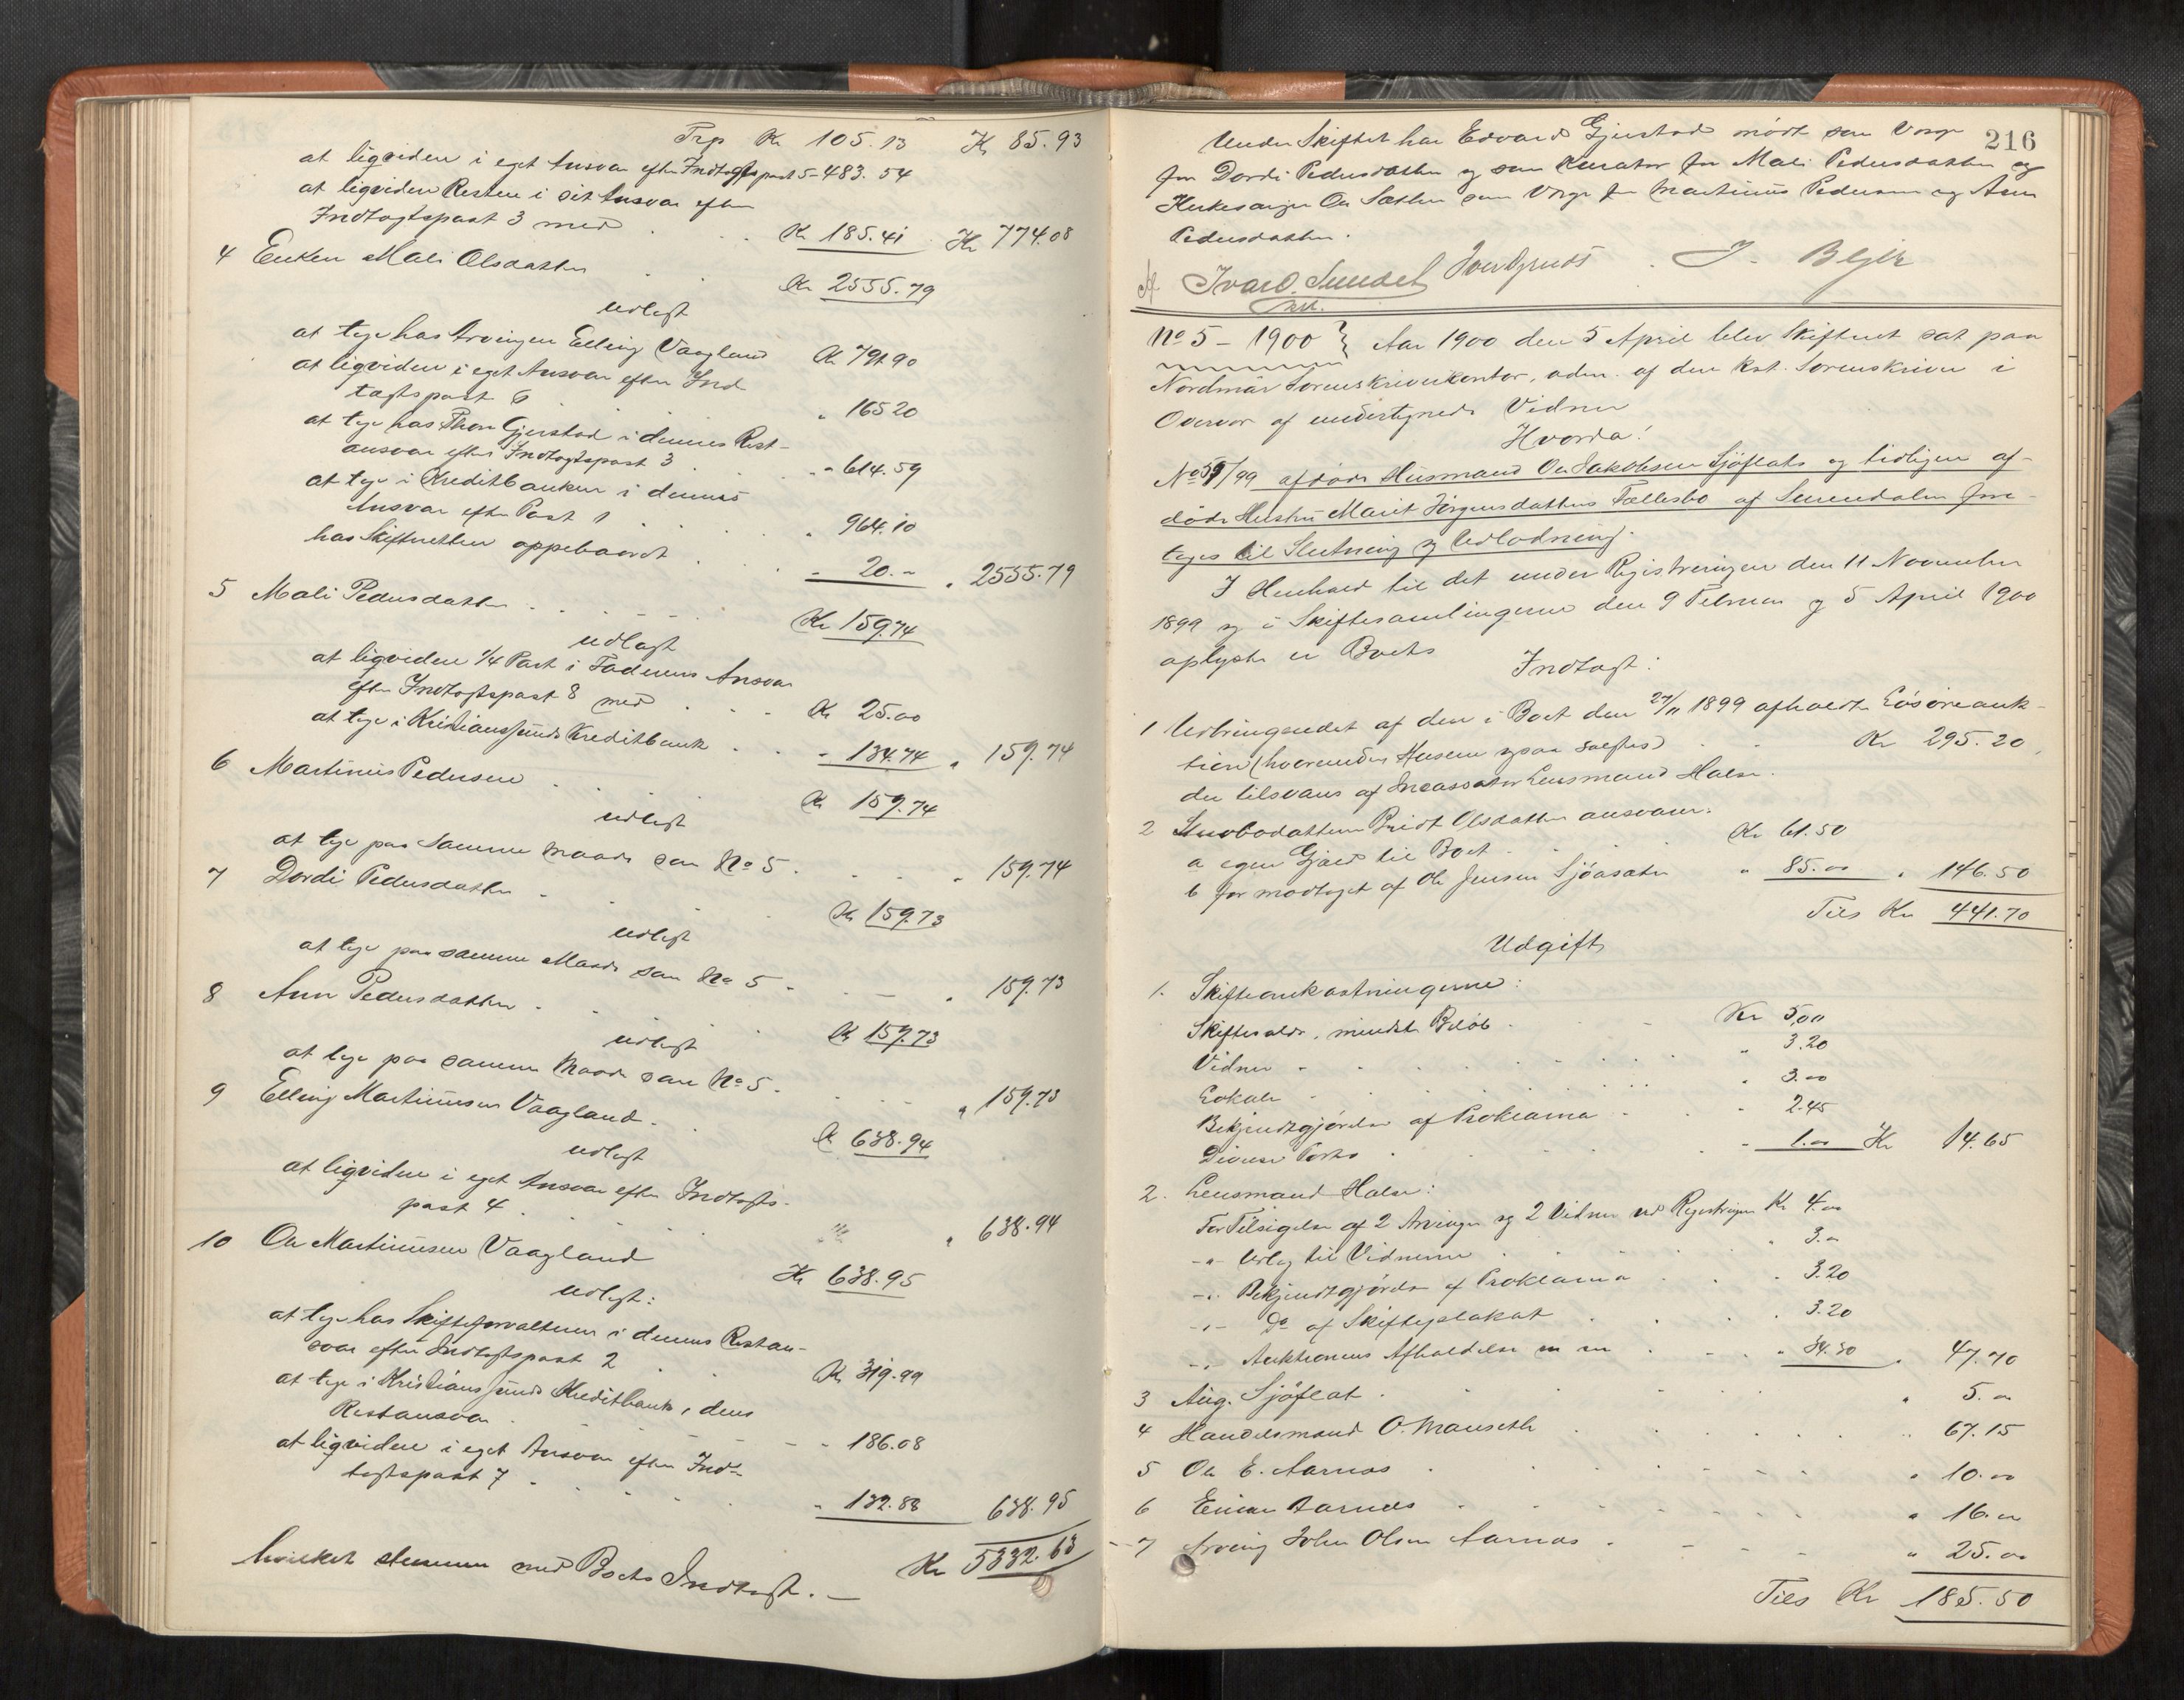 Trp Kr 105.13 Kr 85.93
at ligvidere i eget Ansvar efter Indtægtspost 5 - 483.54
at ligvidere Resten i sit Ansvar efter
Indtægtspost 3 med Kr 185.41 Kr 774.08
4 Enken Mali Olsdatter Kr 2555.79
udlagt
at tage hos Arvingen Elling Vaagland Kr 791.90
at ligvidere i eget Ansvar efter Ind
tægtspost 6 " 165 20
at tage hos Thore Gjerstad i dennes Rest-
ansvar efter Indtægtspost 3 " - 614.59
at tage i Kreditbanken i dennes
Ansvar efter Post 1 " 964.10
hos Skifteretten oppebaaret - 20.- " 2555.79
5 Mali Pedersdatter Kr 159.74
udlagt
at ligvidere 1/4 Part i Faderens Ansvar
efter Indtægtspost 8 med Kr 25.00
at tage i Kristianssunds Kreditbank - 134.74 " 159.74
6 Martinus Pedersen Kr 159.74
udlagt
at tage paa samme Maade som No 5 - 159.74
7 Dordi Pedersdatter Kr 159.73
udlagt
at tage paa samme Maade som No 5 - 159.73
8 Ane Pedersdatter Kr 159.73
udlagt
at tage paa samme Maade som No 5 - " 159.73
9 Elling Martinusen Vaagland Kr 638.94
udlagt
at ligvidere i eget Ansvar efter Indtægts-
post 4 " 638.94
10 Ole Martinusen Vaagland Kr 638.95
udlagt:
at tage hos Skifteforvalteren i dennes Restan-
svar efter Indtægtspost 2 Kr 319.99
at tage i Kristianssunds Kreditbank i dens
Restansvar - 186.08
at ligvidere i eget Ansvar efter Ind-
tægtspost 7 - 132.88 638.95
Kr 5332.63
hvilket stemmer med Boets Indtægt. —
216
Under Skiftet har Edvard Gjerstad mødt som Verge
for Dordi Pedersdatter og som Kurator for Mali Pedersdatter og
Kirkesanger Ole Sæther som Verge for Martinus Pedersen og Ane
Pedersdatter.
Ivar O. Sundet J. Bejer
No 5 - 1900 } Aar 1900 den 5 April blev Skifteret sat paa
Nordmør Sorenskriverkontor, adm. af den kst. Sorenskriver i
Overvær af undertegnede Vidner
Hvorda!
No 59/99 afdøde Husmand Ole Jakobsen Sjøflats og tidligere af-
døde Hustru Marit Jørgensdatters Fællesbo af Surendalen fore-
toges til Slutning og Udlodning.
I Henhold til det under Registreringen den 11 November
1899 og i Skiftesamlingerne den 9 Februar og 5 April 1900
oplyste er Boets
Indtægt:
1 Udbringendet af den i Boet den 27/11 1899 afholdte Løsøreauk-
tion (hvorunder Husene ogsaa solgtes) Kr 295.20
der tilsvares af Incassator Lensmand Halse.
2 Stervbodatteren Bridt Olsdatter ansvarer:
a egen Gjæld til Boet Kr 61.50
b for modtaget af Ole Jensen Sjøasæter " 85.00 " 146.50
Tils Kr 441.70
Udgift
1. Skifteomkostningerne:
Skiftesalær, mindste Beløb Kr 5,00
Vidner " 3.20
Lokale " 3.00
Bekjendtgjørelse af Proklama - 2.45
Diverse Porto - 1.00 Kr 14.65
2. Lensmand Halse:
For Tilsigelse af 2 Arvinger og 2 Vidner ved Registreringen Kr 4.00
-"- Udlæg til Vidnerne " 3.00
-"- Bekjendtgjørelse af Proklama - 3.20
-"- Do af Skifteplakat " 3.20
-"- Auktionens Afholdelse m m " 34.30 " 47.70
3 Aug. Sjøflat " 5.00
4 Handelsmand O. Mauseth " 67.15
5 Ole E. Aarnes " 10.00
6 Einar Aarnes " 16.00
7 Arving John Olsen Aarnæs " 25.00
Tils Kr 185.50